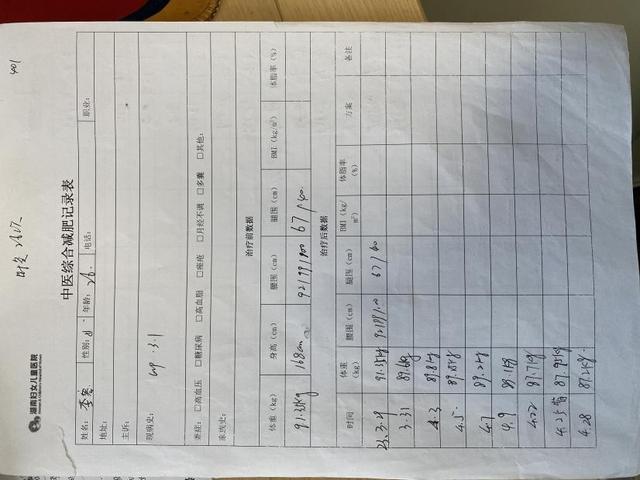 401
湖南妇女儿童医院
中医综合减肥记录表
姓名: 李 性别: 年龄: 26. 电话: 职业:
地址:
主诉:
现病史: lmp: 3.1
兼症: □高血压 □糖尿病 □高血脂 □痤疮 □月经不调 □多囊 □其他:
家族史:
治疗前数据
体重(kg) 身高(cm) 腰围(cm) 腿围(cm) BMI(kg/m²) 体脂率(%)
91.35kg 168cm 92/99/100 67/40
治疗后数据
时间 体重(kg) 腰围(cm) 腿围(cm) BMI(kg/m²) 体脂率(%) 方案 备注
23.3.29 91.35kg 92/99/100 67/40
3.31 89.6kg
4.3 89.8kg
4.5 89.85kg
4.7 89.2kg
4.9 89.1kg
4.22 87.7kg
4.25 87.95kg
4.28 87.2kg